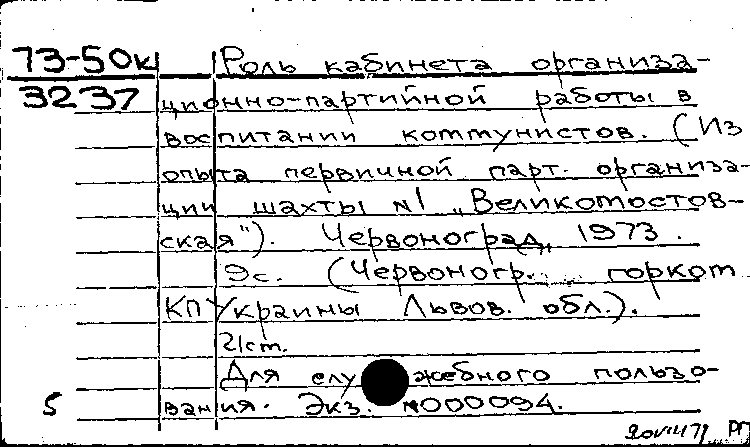 73-50к Роль кабинета организа-
3237 ционно-партийной работы в
воспитании коммунистов. (Из
опыта первичной парт. организа-
ции шахты №1 „Великомостов-
ская"). Червоноград, 1973.
9с. (Червоногр. горком
КП Украины Львов. обл.).
21см.
Для служебного пользо-
5 вания. Экз. №000094.